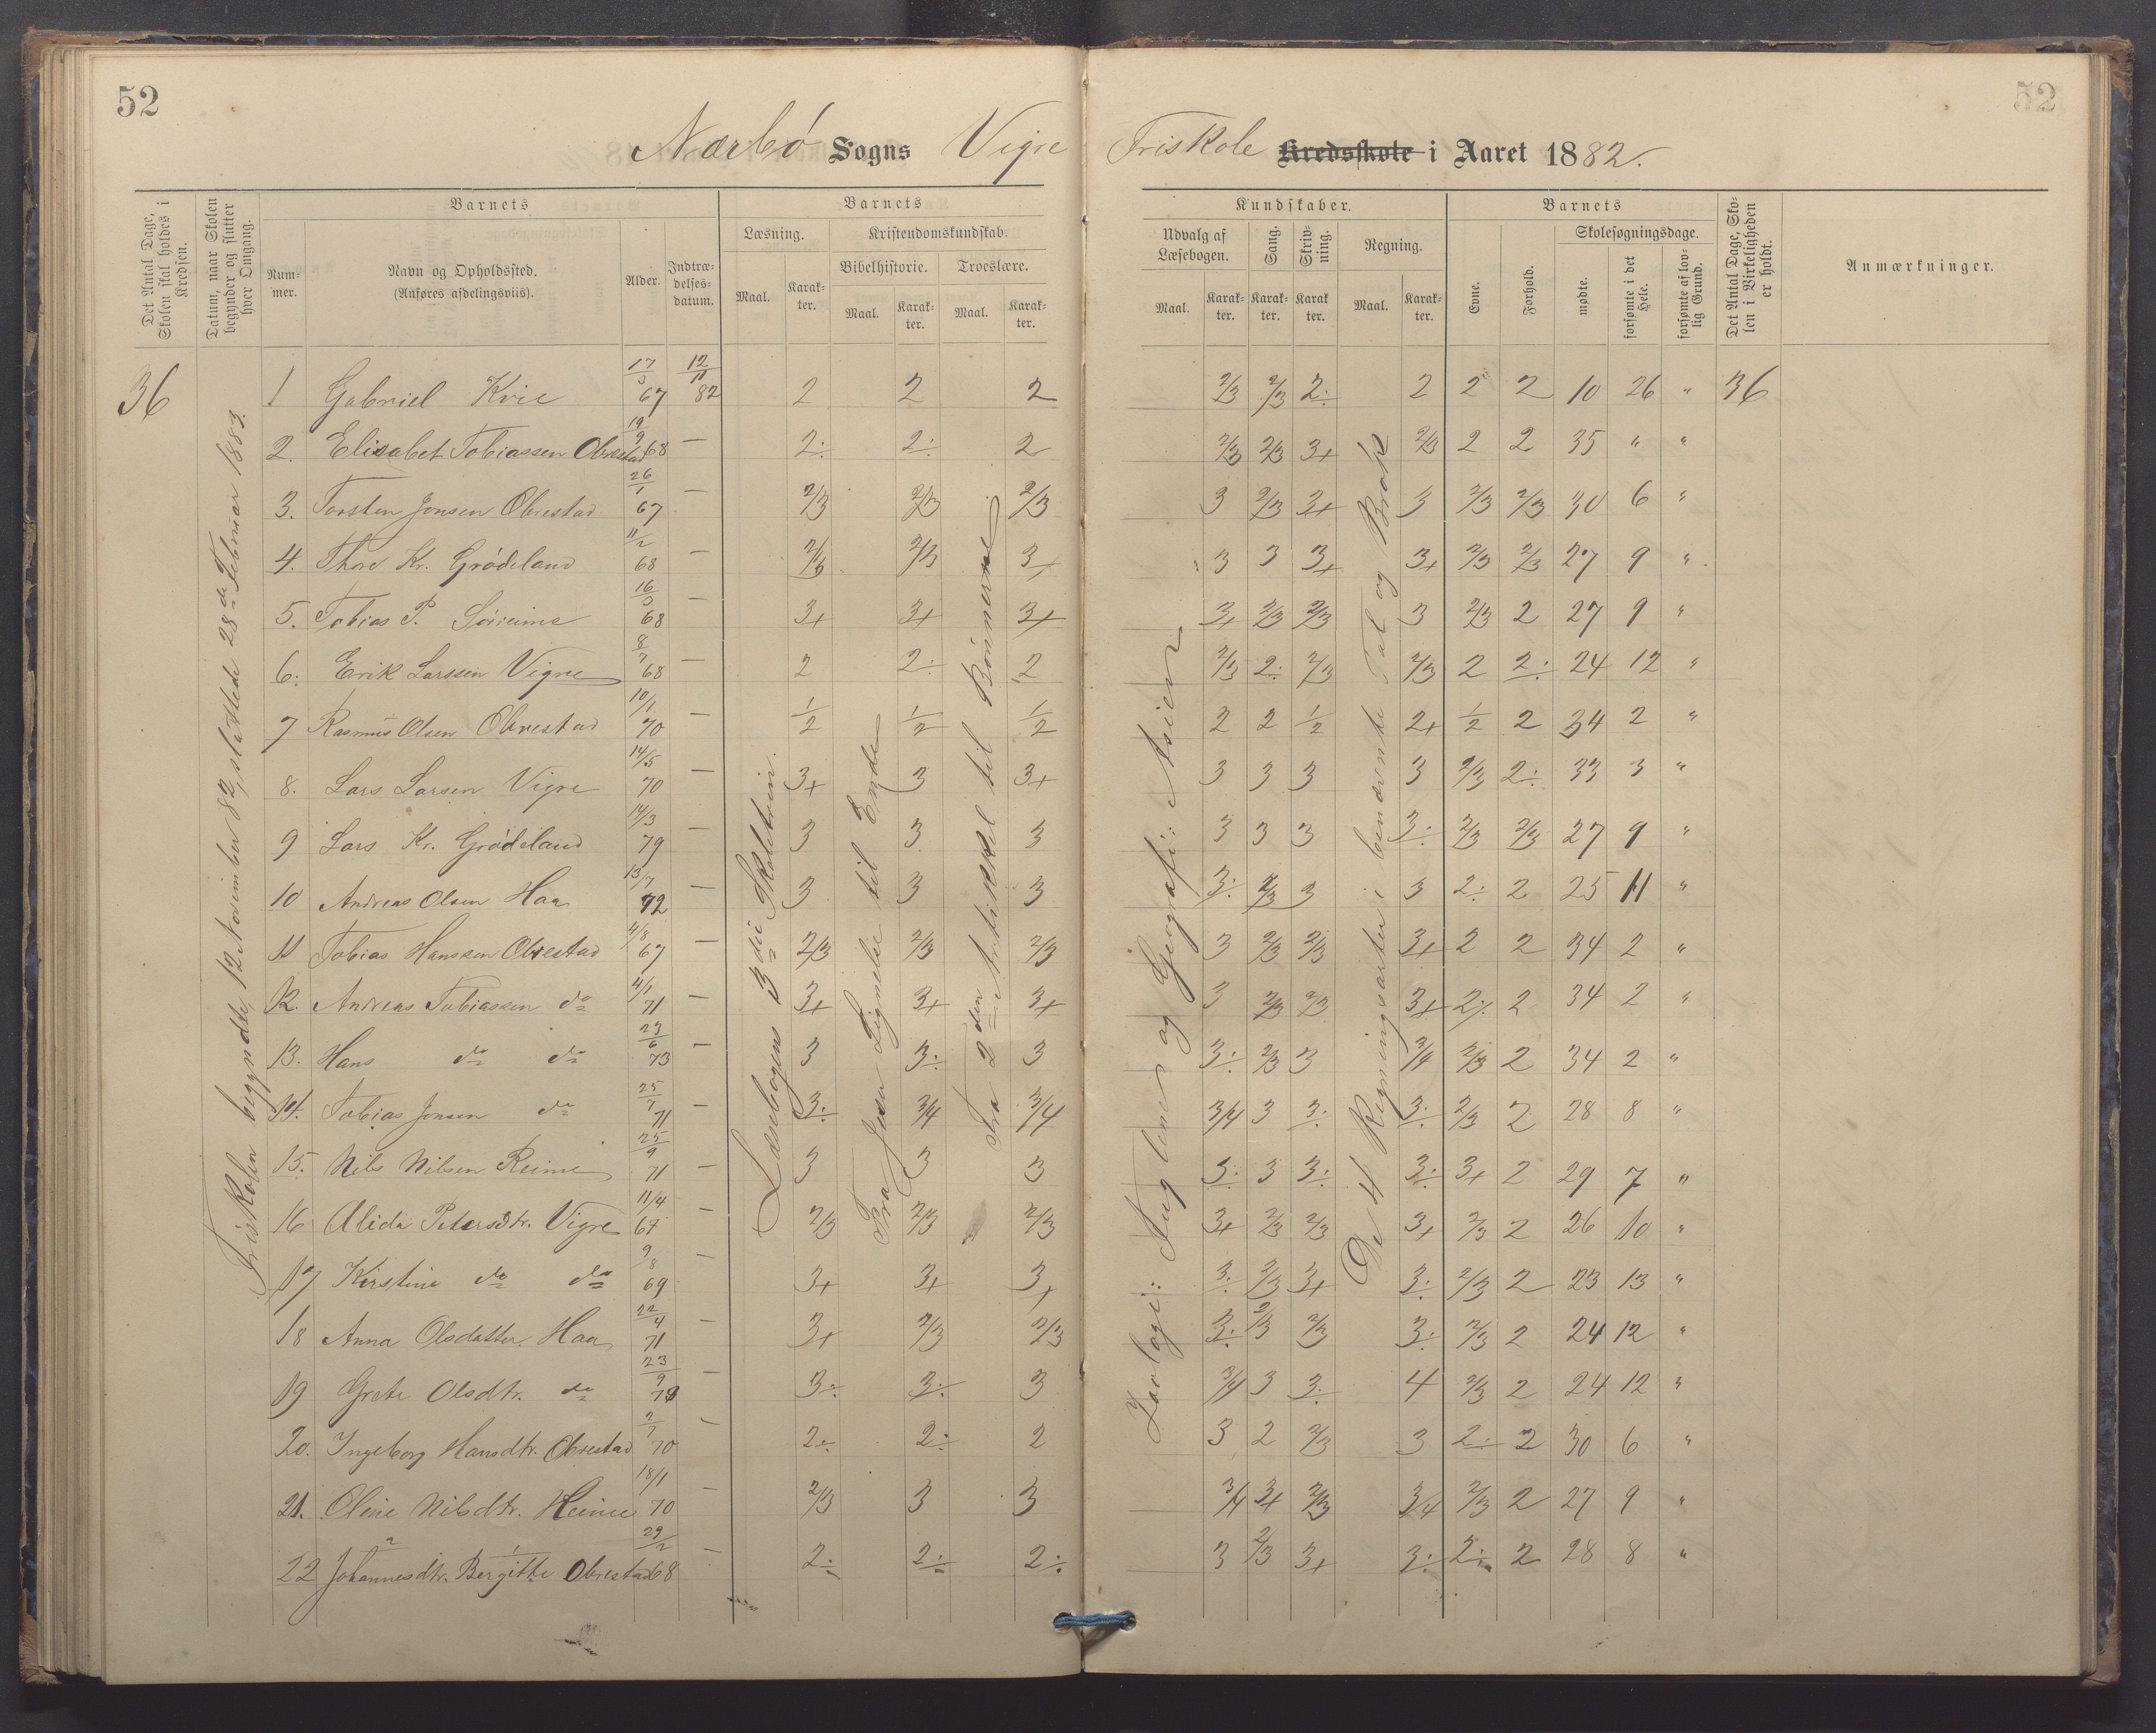 52
52
Nærbö Sogns Vigre Friskole Kredsskole i Aaret 1882.
Det Antal Dage, Skolen skal holdes i Kredsen.
Datum, naar Skolen begynder og slutter hver Omgang.
Barnets
Num-mer.
Navn og Opholdssted.
(Anføres afdelingsviis).
Alder.
Indtræ-delses-datum.
Barnets
Læsning.
Maal.
Karak-ter.
Kristendomskundskab.
Bibelhistorie.
Maal.
Karak-ter.
Troeslære.
Maal.
Karak-ter.
Kundskaber.
Udvalg af Læsebogen.
Maal.
Karak-ter.
Sang.
Karak-ter.
Skriv-ning.
Karak ter.
Regning.
Maal.
Karak-ter.
Barnets
Evne.
Forhold.
Skolesøgningsdage.
mødte.
forsømte i det Hele.
forsømte af lov-lig Grund.
Det Antal Dage, Sko-len i Virkeligheden er holdt.
Anmærkninger.
36
Friskolen begyndte 12 November 82, sluttede 28de Februar 1883.
Læsebogens 3die Skoletrin.
Fra Jesu Lignelse til Ende
Fra 2den Artikkel til Bönnerne
Zoologi: Fuglene og Geografi: Asien
De 4 Regningsarter i benævnte Tal og Brøk
1 Gabriel Kvie 17/3 67 12/11 82 2 2 2 2/3 2/3 2÷ 2 2 2 10 26 " 36
2. Elisabet Tobiassen Obrestad 19/9 68 — 2÷ 2÷ 2 2/3 2/3 3+ 2/3 2 2 35 " "
3. Torsten Jonsen Obrestad 26/1 67 — 2/3 2/3 2/3 3 2/3 3+ 3 2/3 2/3 30 6 "
4. Thore Kr. Grödeland 11/2 68 — 2/3 2/3 3+ 3 3 3+ 3+ 2/3 2/3 27 9 "
5. Tobias P. Söireime 16/3 68 — 3+ 3+ 3+ 3+ 2/3 2/3 3 2/3 2 27 9 "
6. Erik Larssen Vigre 8/7 68 — 2 2÷ 2 2/3 2÷ 2/3 2/3 2 2÷ 24 12 "
7 Rasmus Olsen Obrestad 10/1 70 — 1/2 1/2 1/2 2 2 1/2 2+ 1/2 2 34 2 "
8. Lars Larsen Vigre 14/5 70 — 3+ 3 3+ 3 3 3 3 2/3 2÷ 33 3 "
9 Lars Kr. Grödeland 14/3 79 — 3 3 3 3 3 3 3÷ 2/3 2/3 27 9 "
10 Andreas Olsen Haa 13/7 72 — 3 3 3 3÷ 2/3 3 3 2÷ 2 25 11 "
11 Tobias Hanssen Obrestad 4/8 67 — 2/3 2/3 2/3 3 2/3 2/3 3+ 2 2 34 2 "
12. Andreas Tobiassen do 4/1 71 — 3+ 3+ 3+ 3 2/3 2/3 3+ 2÷ 2 34 2 "
13. Hans do do 23/6 73 — 3 3÷ 3 3÷ 2/3 3 3/4 2/3 2 34 2 "
14. Tobias Jonsen do 25/7 71 — 3÷ 3/4 3/4 3/4 3 3÷ 3÷ 2/3 2 28 8 "
15. Nils Nilsen Reime 25/9 71 — 3 3 3 3÷ 3 3÷ 3÷ 3+ 2 29 7 "
16 Alida Petersdtr. Vigre 11/4 67 — 2/3 2/3 2/3 3+ 2/3 2/3 3+ 2/3 2 26 10 "
17 Kirstine do do 9/8 69 — 3+ 3+ 3+ 3÷ 2/3 3+ 3÷ 2/3 2 23 13 "
18 Anna Olsdatter Haa 22/4 71 — 3+ 2/3 2/3 3÷ 2/3 2/3 3÷ 2/3 2 24 12 "
19 Grete Olsdtr. do 23/9 — 3÷ 3÷ 3 3/4 3 3÷ 4 2/3 2 24 12 "
20. Ingeborg Hansdtr. Obrestad 2/7 70 — 2÷ 2÷ 2 3 2 2/3 3 2÷ 2 30 6 "
21. Oline Nilsdtr. Reime 18/1 70 — 2/3 3 3 3/4 3+ 2/3 3/4 2/3 2 27 9 "
22 Johannesdtr. Bergitte Obrestad 29/2 68 — 2÷ 2÷ 2÷ 3 2/3 3+ 3÷ 2÷ 2 28 8 "